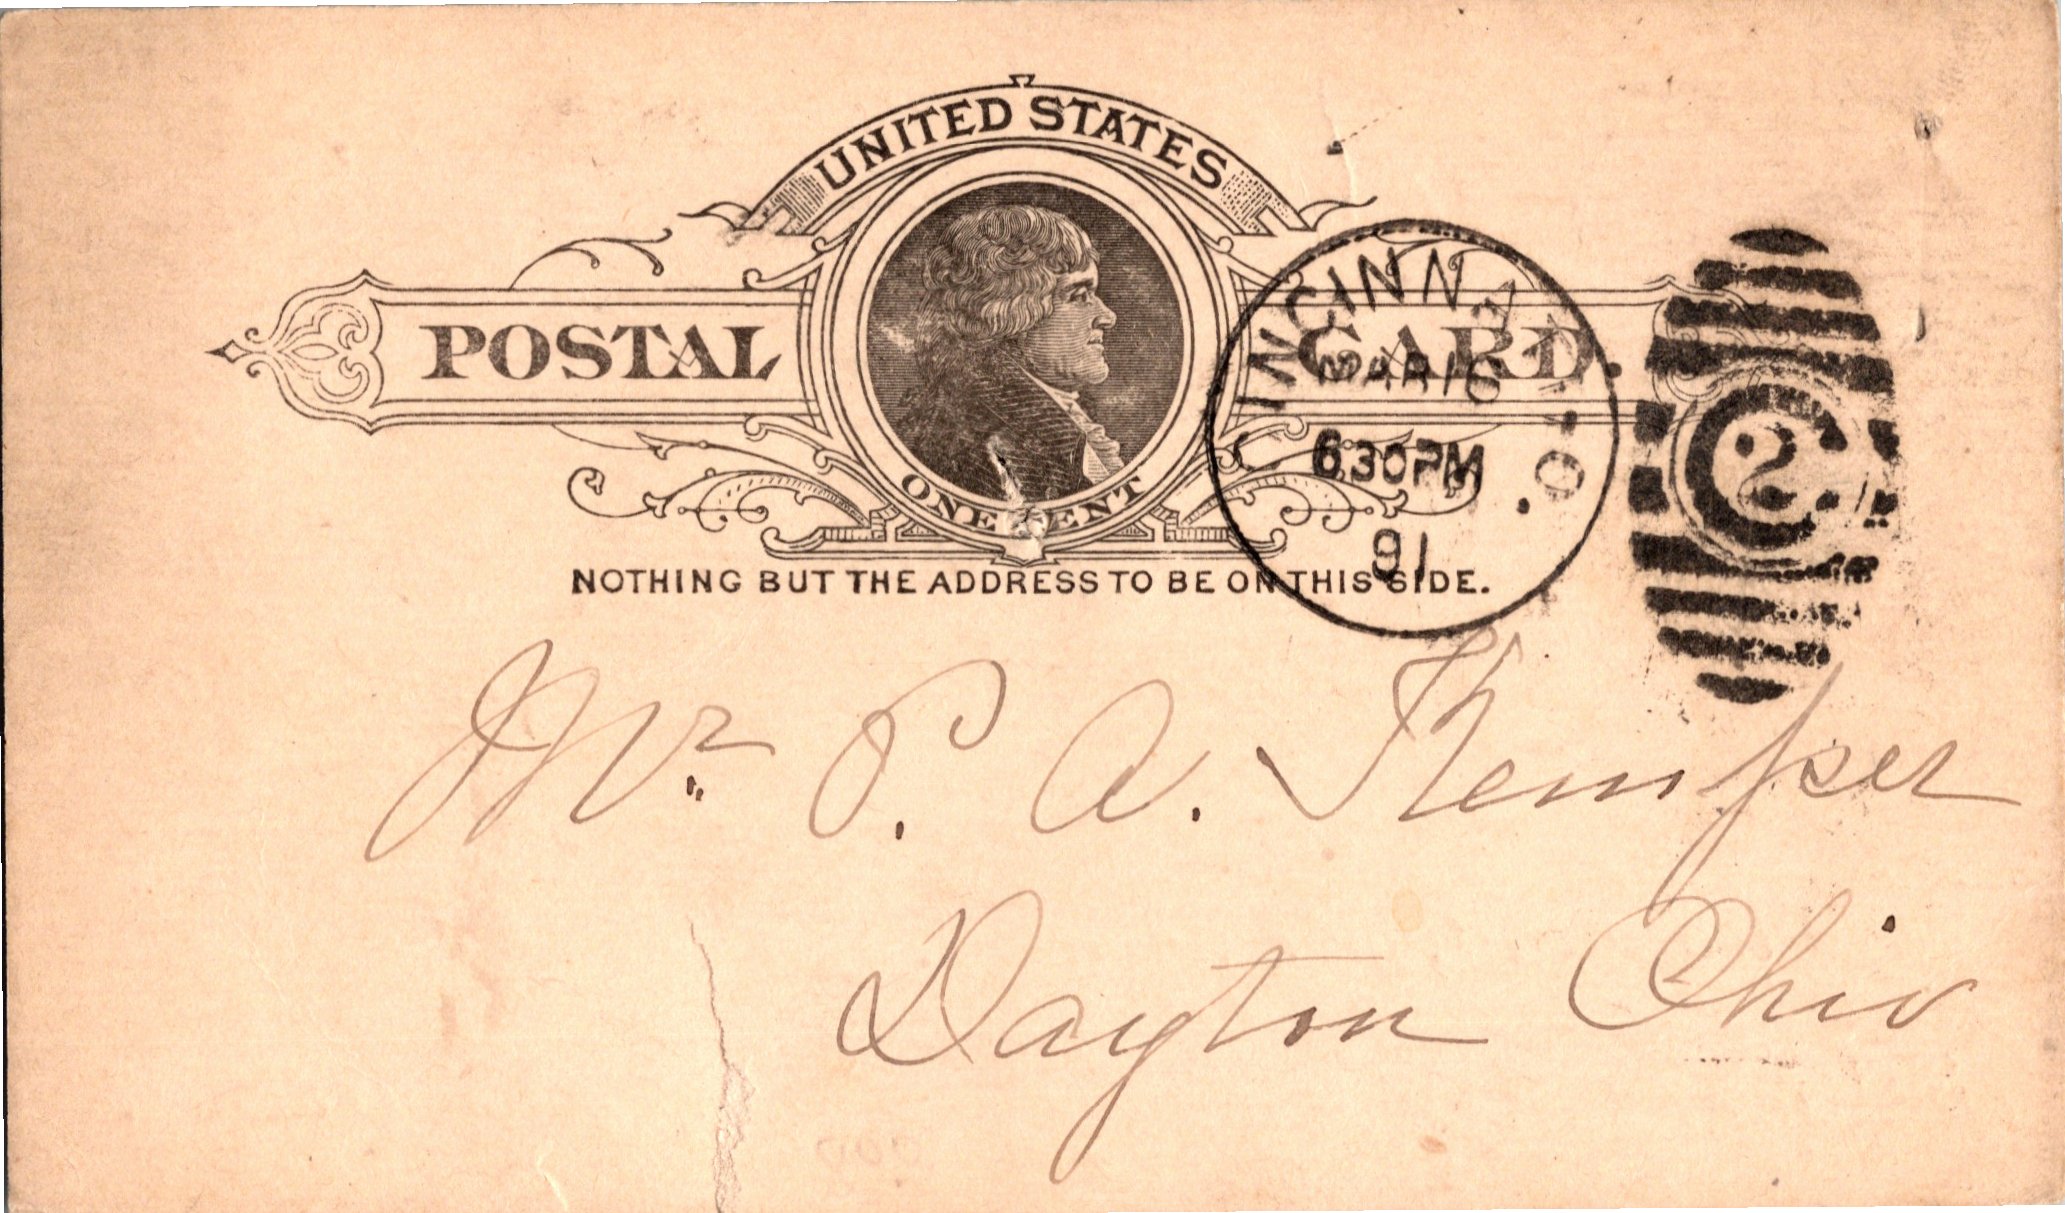 UNITED STATES
POSTAL CARD.
ONE CENT
NOTHING BUT THE ADDRESS TO BE ON THIS SIDE.
CINCINNATI O.
MAR 16
630PM
91
2
Mr. P. A. Kemper
Dayton Ohio